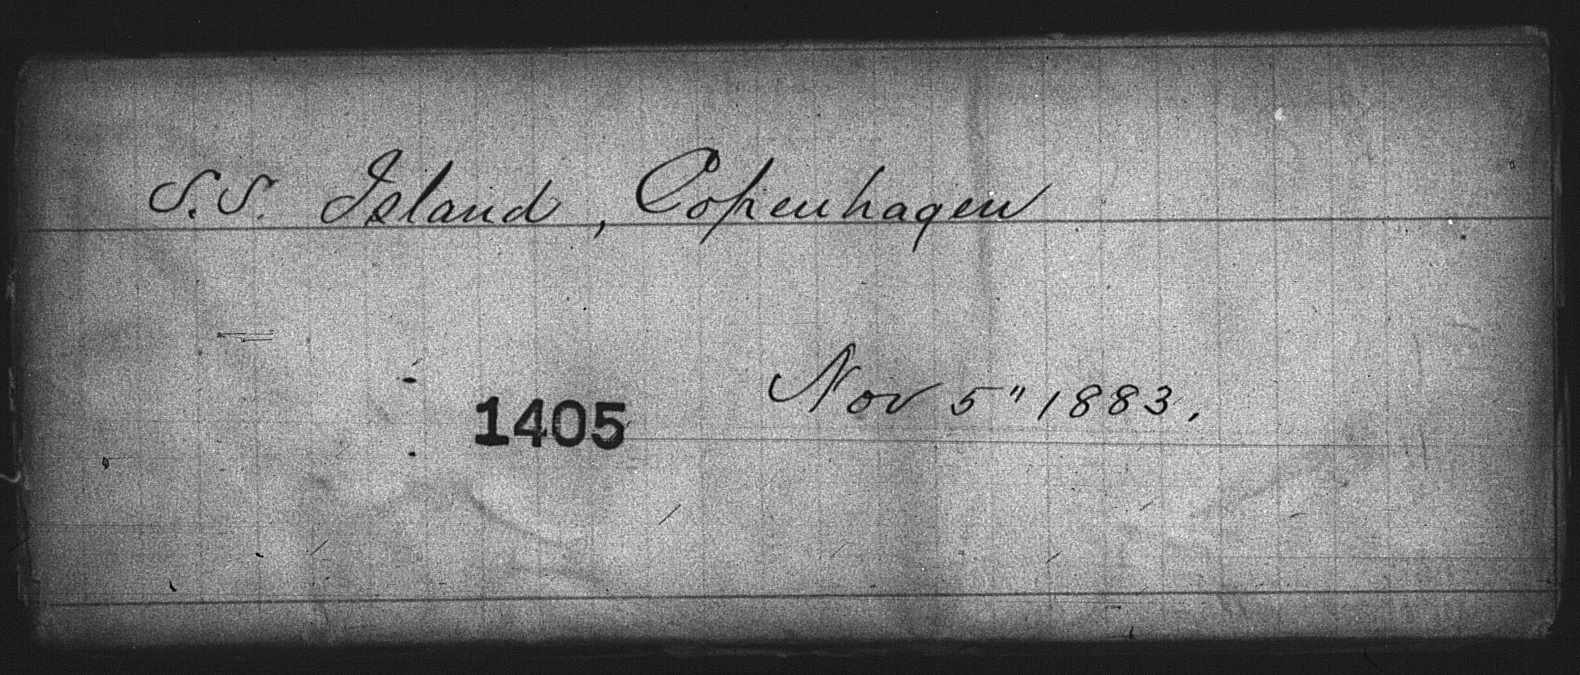 S.S. Island, Copenhagen
Nov 5" 1883.
1405